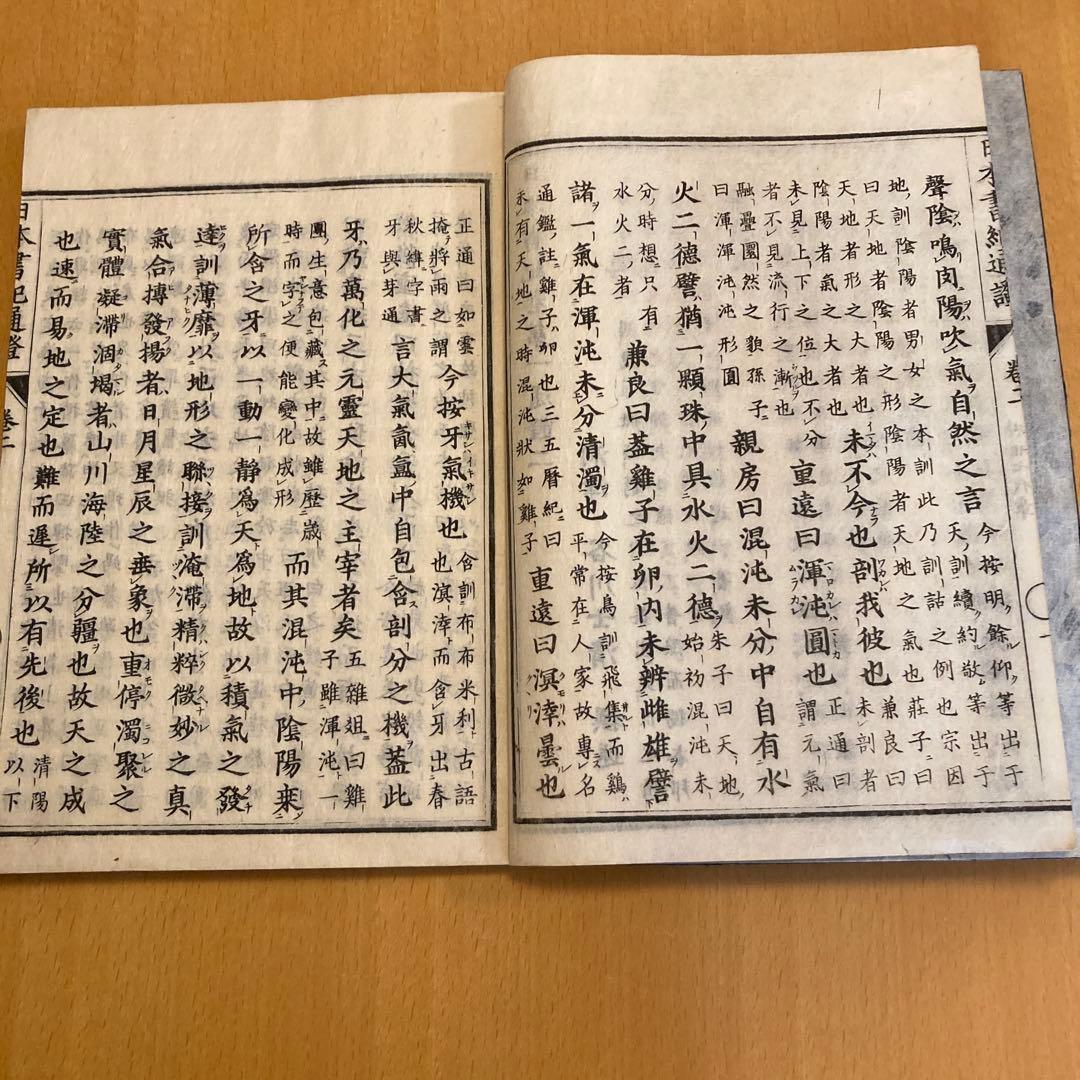 日本書紀通證
卷二
聲陰鳴肉陽吹氣自然之言
今按明餘仰等出于
天訓續約敬等出于
地訓陰陽者男女之本訓此乃訓詁之例也宗因
曰天地者陰陽之形陰陽者天地之氣也莊子曰
天地者形之大者也
陰陽者氣之大者也
未不今也剖我彼也
兼良曰
未剖者
未見上下之位也不分
者不見流行之漸也
重遠曰渾沌圓也
正通曰
謂元氣
融疊團然之貌孫子
曰渾渾沌沌形圓
親房曰混沌未分中自有水
火二德譬猶一顆珠中具水火二德
朱子曰天地
始初混沌未
分時想只有
水火二者
兼良曰蓋雞子在卵内未辨雌雄譬
諸一氣在渾沌未分清濁也
今按鳥訓飛集而鷄
平常在人家故專名
通鑑註雞子卵也三五曆紀曰
未有天地之時混沌狀如雞子
重遠曰溟涬曇也
正通曰如雲
掩將雨之謂
今按牙氣機也
含訓布布米利古語
也溟涬而含牙出春
秋緯字書
牙與芽通
言大氣氤氳中自包含剖分之機蓋此
牙乃萬化之元靈天地之主宰者矣
五雜俎曰雞
子雖渾沌一
團生意包藏其中故雖歴歳
時而字之便能變化成形
而其混沌中陰陽來
所含之牙以一動一靜為天為地故以積氣之發
達訓薄靡以地形之聯接訓淹滯精粹微妙之真
氣合搏發揚者日月星辰之垂象也重停濁聚之
實體凝滯涸堨者山川海陸之分疆也故天之成
也速而易地之定也難而遲所以有先後也
清陽
以下
日本書紀通證
卷二